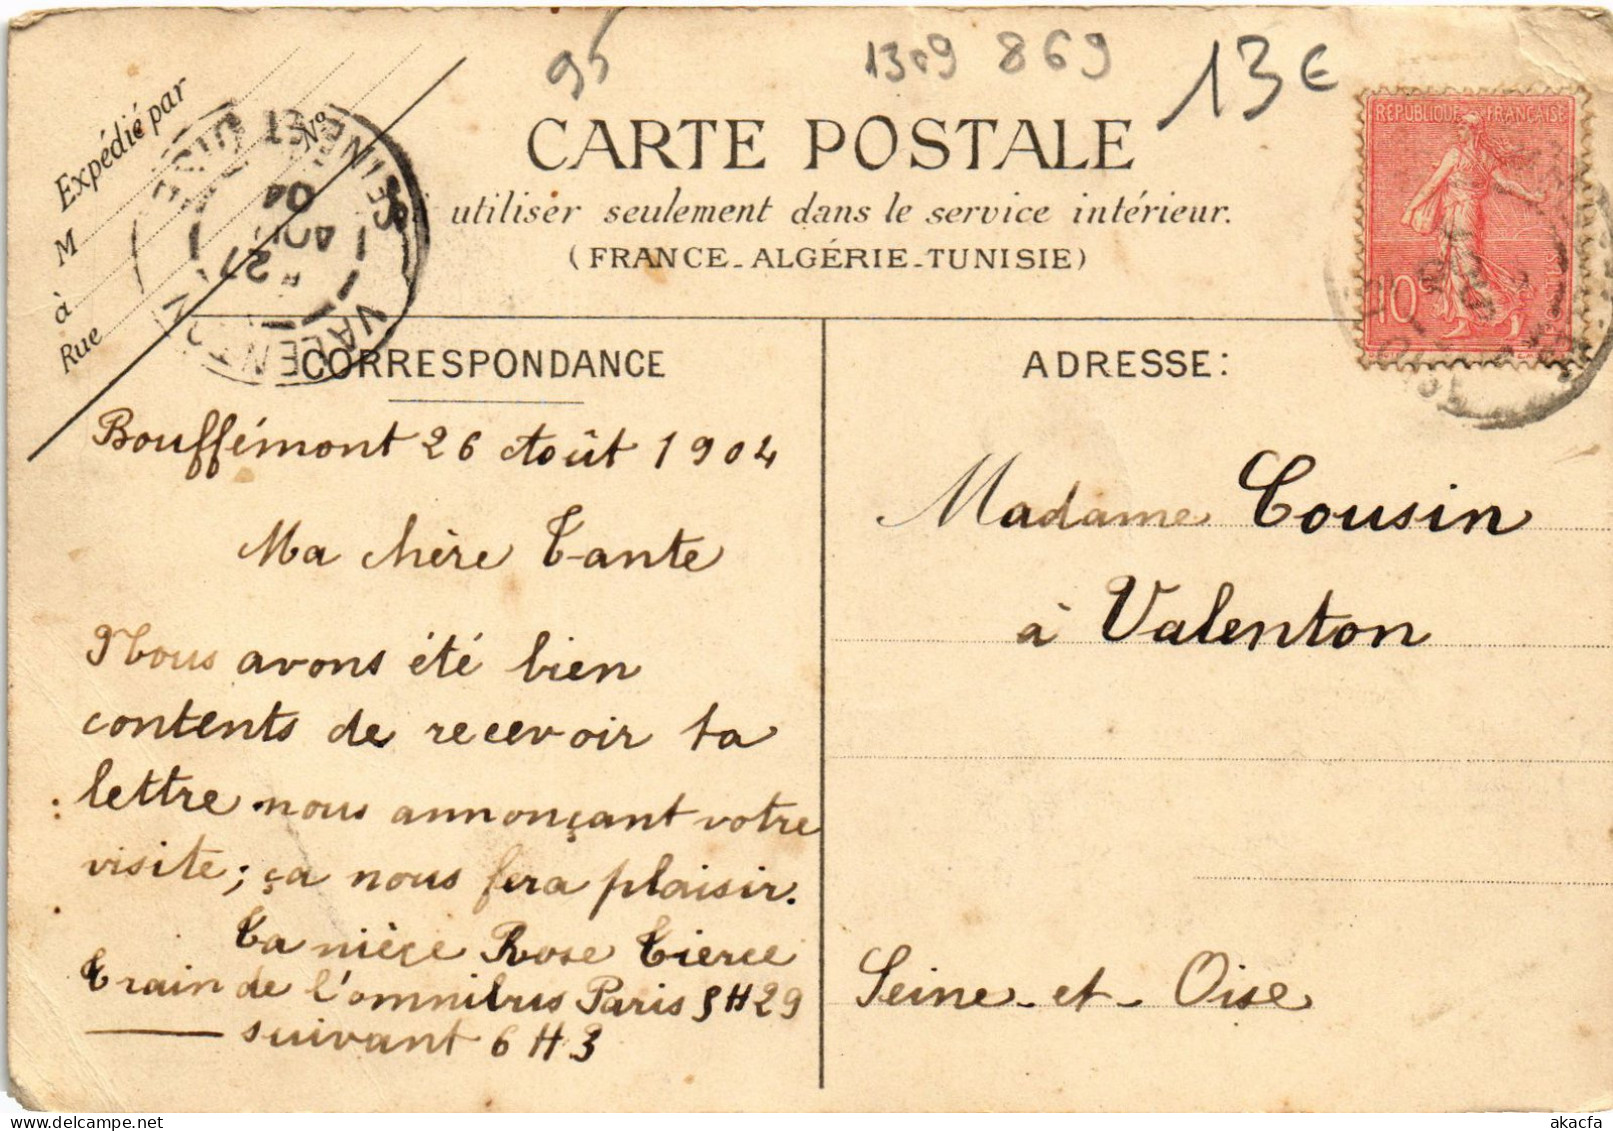 95
1309 869
13€
Expédié par
N°
M
à
Rue
CARTE POSTALE
utiliser seulement dans le service intérieur.
(FRANCE_ALGÉRIE_TUNISIE)
RÉPUBLIQUE FRANÇAISE
10c
VALENTON
SEINE ET OISE
27
AOU
04
CORRESPONDANCE
ADRESSE:
Bouffémont 26 Août 1904
Ma chère Tante
Nous avons été bien
contents de recevoir ta
lettre nous annonçant votre
visite; ça nous fera plaisir.
Ta nièce Rose Tierce
Train de l'omnibus Paris 5H29
suivant 6H3
Madame Cousin
à Valenton
Seine-et-Oise
akacfa